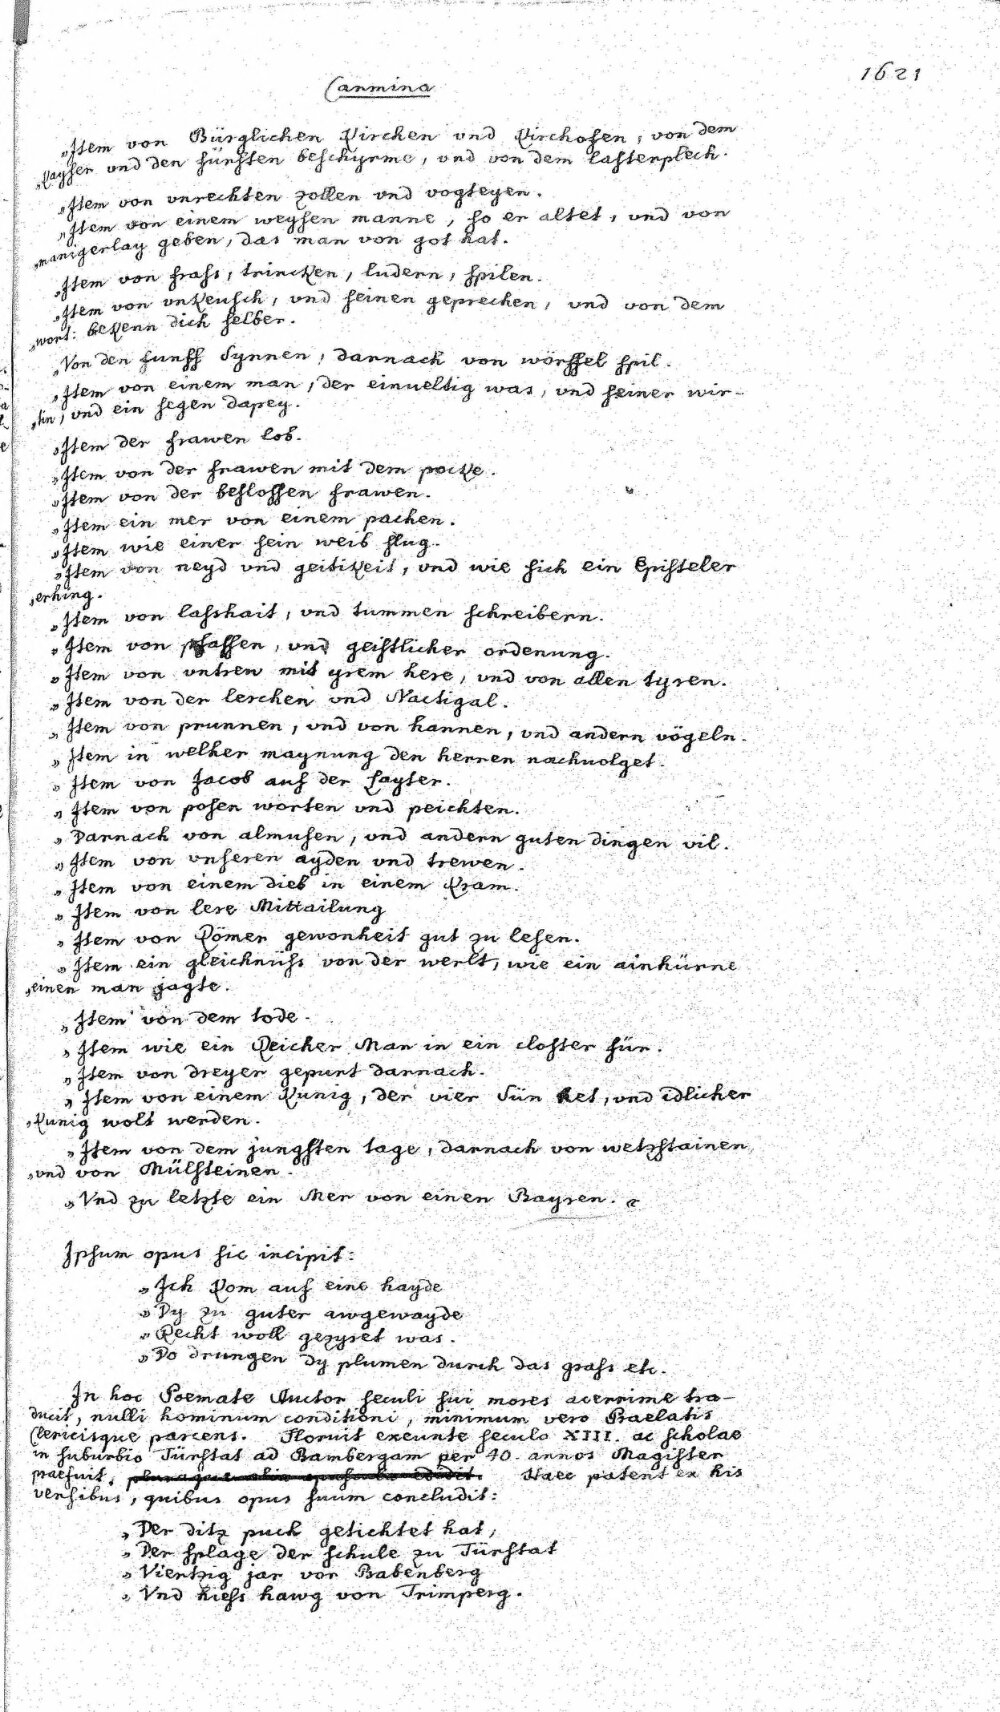 1621
Carmina
„Item von Bürglichen Kirchen vnd Kirchofen, von dem
„Kayser vnd den fürsten beschyrme, vnd von dem lasterplech.
„Item von vnrechten zollen vnd vogteyen.
„Item von einem weysen manne, so er altet, vnd von
„manigerlay geben, das man von got hat.
„Item von frass, trincken, ludern, spilen.
„Item von vnkeusch, vnd seinen geprechen, vnd von dem
„wort: bekenn dich selber.
„Von den funff Synnen, darnach von wörffel spil.
„Item von einem man, der einueltig was, vnd seiner wir-
„tin, vnd ein segen dapey.
„Item der frawen lob.
„Item von der frawen mit dem pocke.
„Item von der beslossen frawen.
„Item ein mer von einem pachen.
„Item wie einer sein weib slug.
„Item von neyd vnd geitikeit, vnd wie sich ein Episteler
„erhing.
„Item von lasshait, vnd tummen schreibern.
„Item von pfaffen, vnd geistlicher ordenung.
„Item von vntren mit yrem here, vnd von allen tyren.
„Item von der lerchen vnd Nactigal.
„Item von prunnen, vnd von hannen, vnd andern vögeln.
„Item in welher maynung den herren nachuolget.
„Item von Jacob auf der Layter.
„Item von posen worten vnd peichten.
„Darnach von almusen, vnd andern guten dingen vil.
„Item von vnseren ayden vnd trewen.
„Item von einem dieb in einem Kram.
„Item von lere Mittailung
„Item von Römer gewonheit gut zu lesen.
„Item ein gleichnüss von der werlt, wie ein ainhürne
„einen man jagte.
„Item von dem tode.
„Item wie ein Reicher Man in ein closter für.
„Item von dreyer gepurt darnach.
„Item von einem Kunig, der vier Sün het, vnd idlicher
„Kunig wolt werden.
„Item von dem jungsten tage, darnach von wetzstainen,
„vnd von Mülsteinen.
„Vnd zu letzte ein Mer von einen Bayren.
Ipsum opus sic incipit:
„Ich Kom auf eine hayde
„Dy zu guter awgewayde
„Recht woll gezyret was.
„Do drungen dy plumen durch das grass etc.
In hoc Poemate Auctor seculi sui mores acerrime tra-
ducit, nulli hominum conditioni, minimum vero Praelatis
Clericisque parcens. Floruit exeunte seculo XIII. ac scholae
in suburbio Türstat ad Bambergam per 40. annos Magister
praefuit, Haec patent ex his
versibus, quibus opus suum concludit:
„Der ditz puch getichtet hat,
„Der splage der schule zu Türstat
„Viertzig jar vor Babenberg
„Vnd hiess hawg von Trimperg.